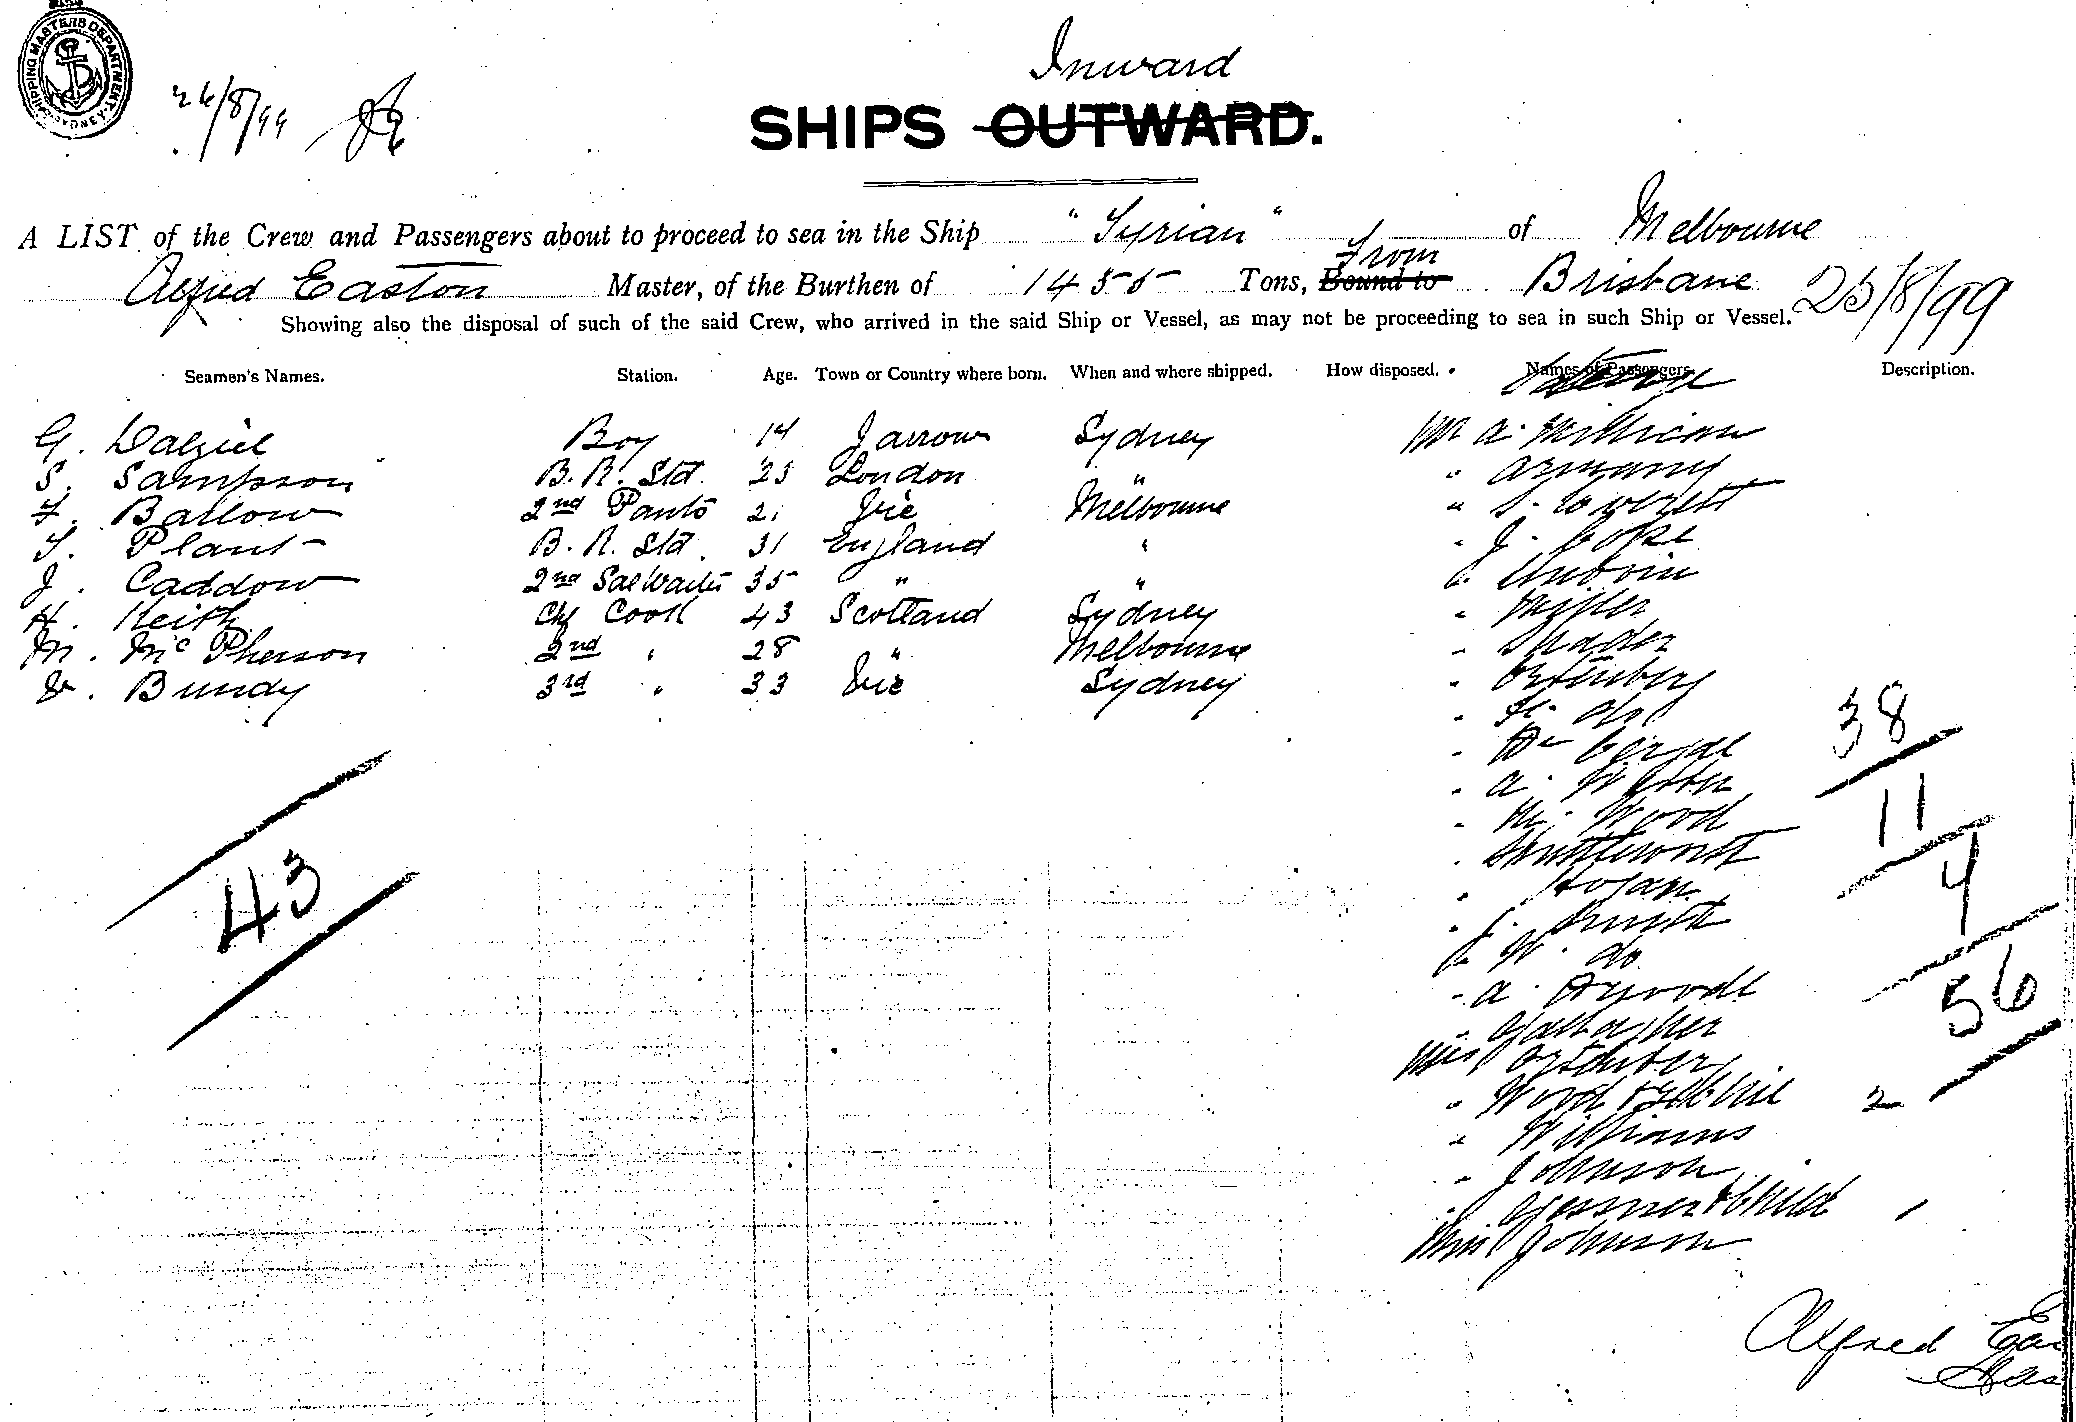 SHIPPING MASTERS DEPARTMENT
26/8/99
Inward
SHIPS OUTWARD.
A LIST of the Crew and Passengers about to proceed to sea in the Ship "Syrian" of Melbourne
From
Alfred Easton Master, of the Burthen of 1455 Tons, Bound to Brisbane 25/8/99
Showing also the disposal of such of the said Crew, who arrived in the said Ship or Vessel, as may not be proceeding to sea in such Ship or Vessel.
Seamen's Names. Station. Age. Town or Country where born. When and where shipped. How disposed. Names of Passengers Description.
G. Dalziel Boy 14 Jarrow Sydney
S. Sampson B. R. Std. 23 London "
F. Ballow 2nd Panto 21 Ire Melbourne
T. Plant B. R. Std. 31 England "
J. Caddow 2nd Sal Waiter 35 " "
H. Keith Chf Cook 43 Scotland Sydney
M. McPherson 2nd " 28 " Melbourne
Bundy 3rd " 33 Ire Sydney
43
Mr A. Millican
" S.
" J. Cope
" Unwin
" Miller
" Ortenberg
" do
" A.
" M. Wood
" Shuttleworth
" Hogan
" J. Smyth
" W. do
" A.
" Gallagher
Mrs Ortenberg
" Wood 2
" Williams
" Johnson
" & Child 1
Miss Johnson
38
11
4
56
Alfred Eas